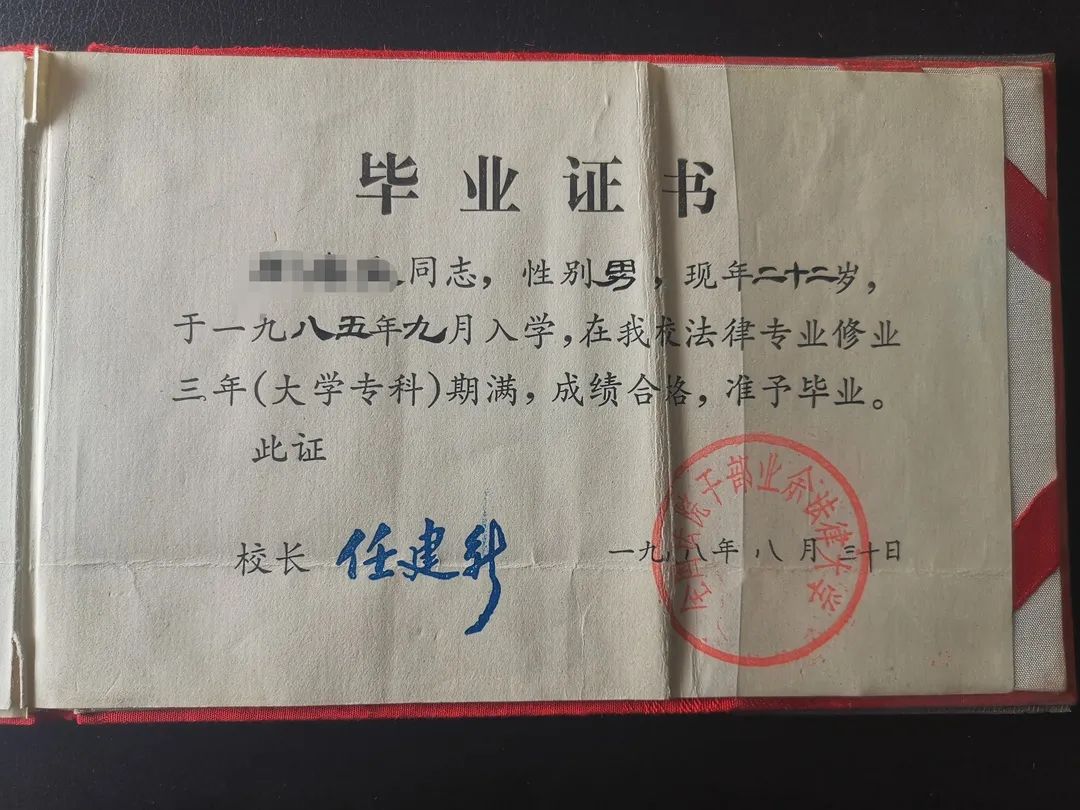 毕业证书
同志，性别男，现年二十二岁，
于一九八五年九月入学，在我校法律专业修业
三年(大学专科)期满，成绩合格，准予毕业。
此证
校长 任建新
一九八八年八月三十日
全国法院干部业余法律大学